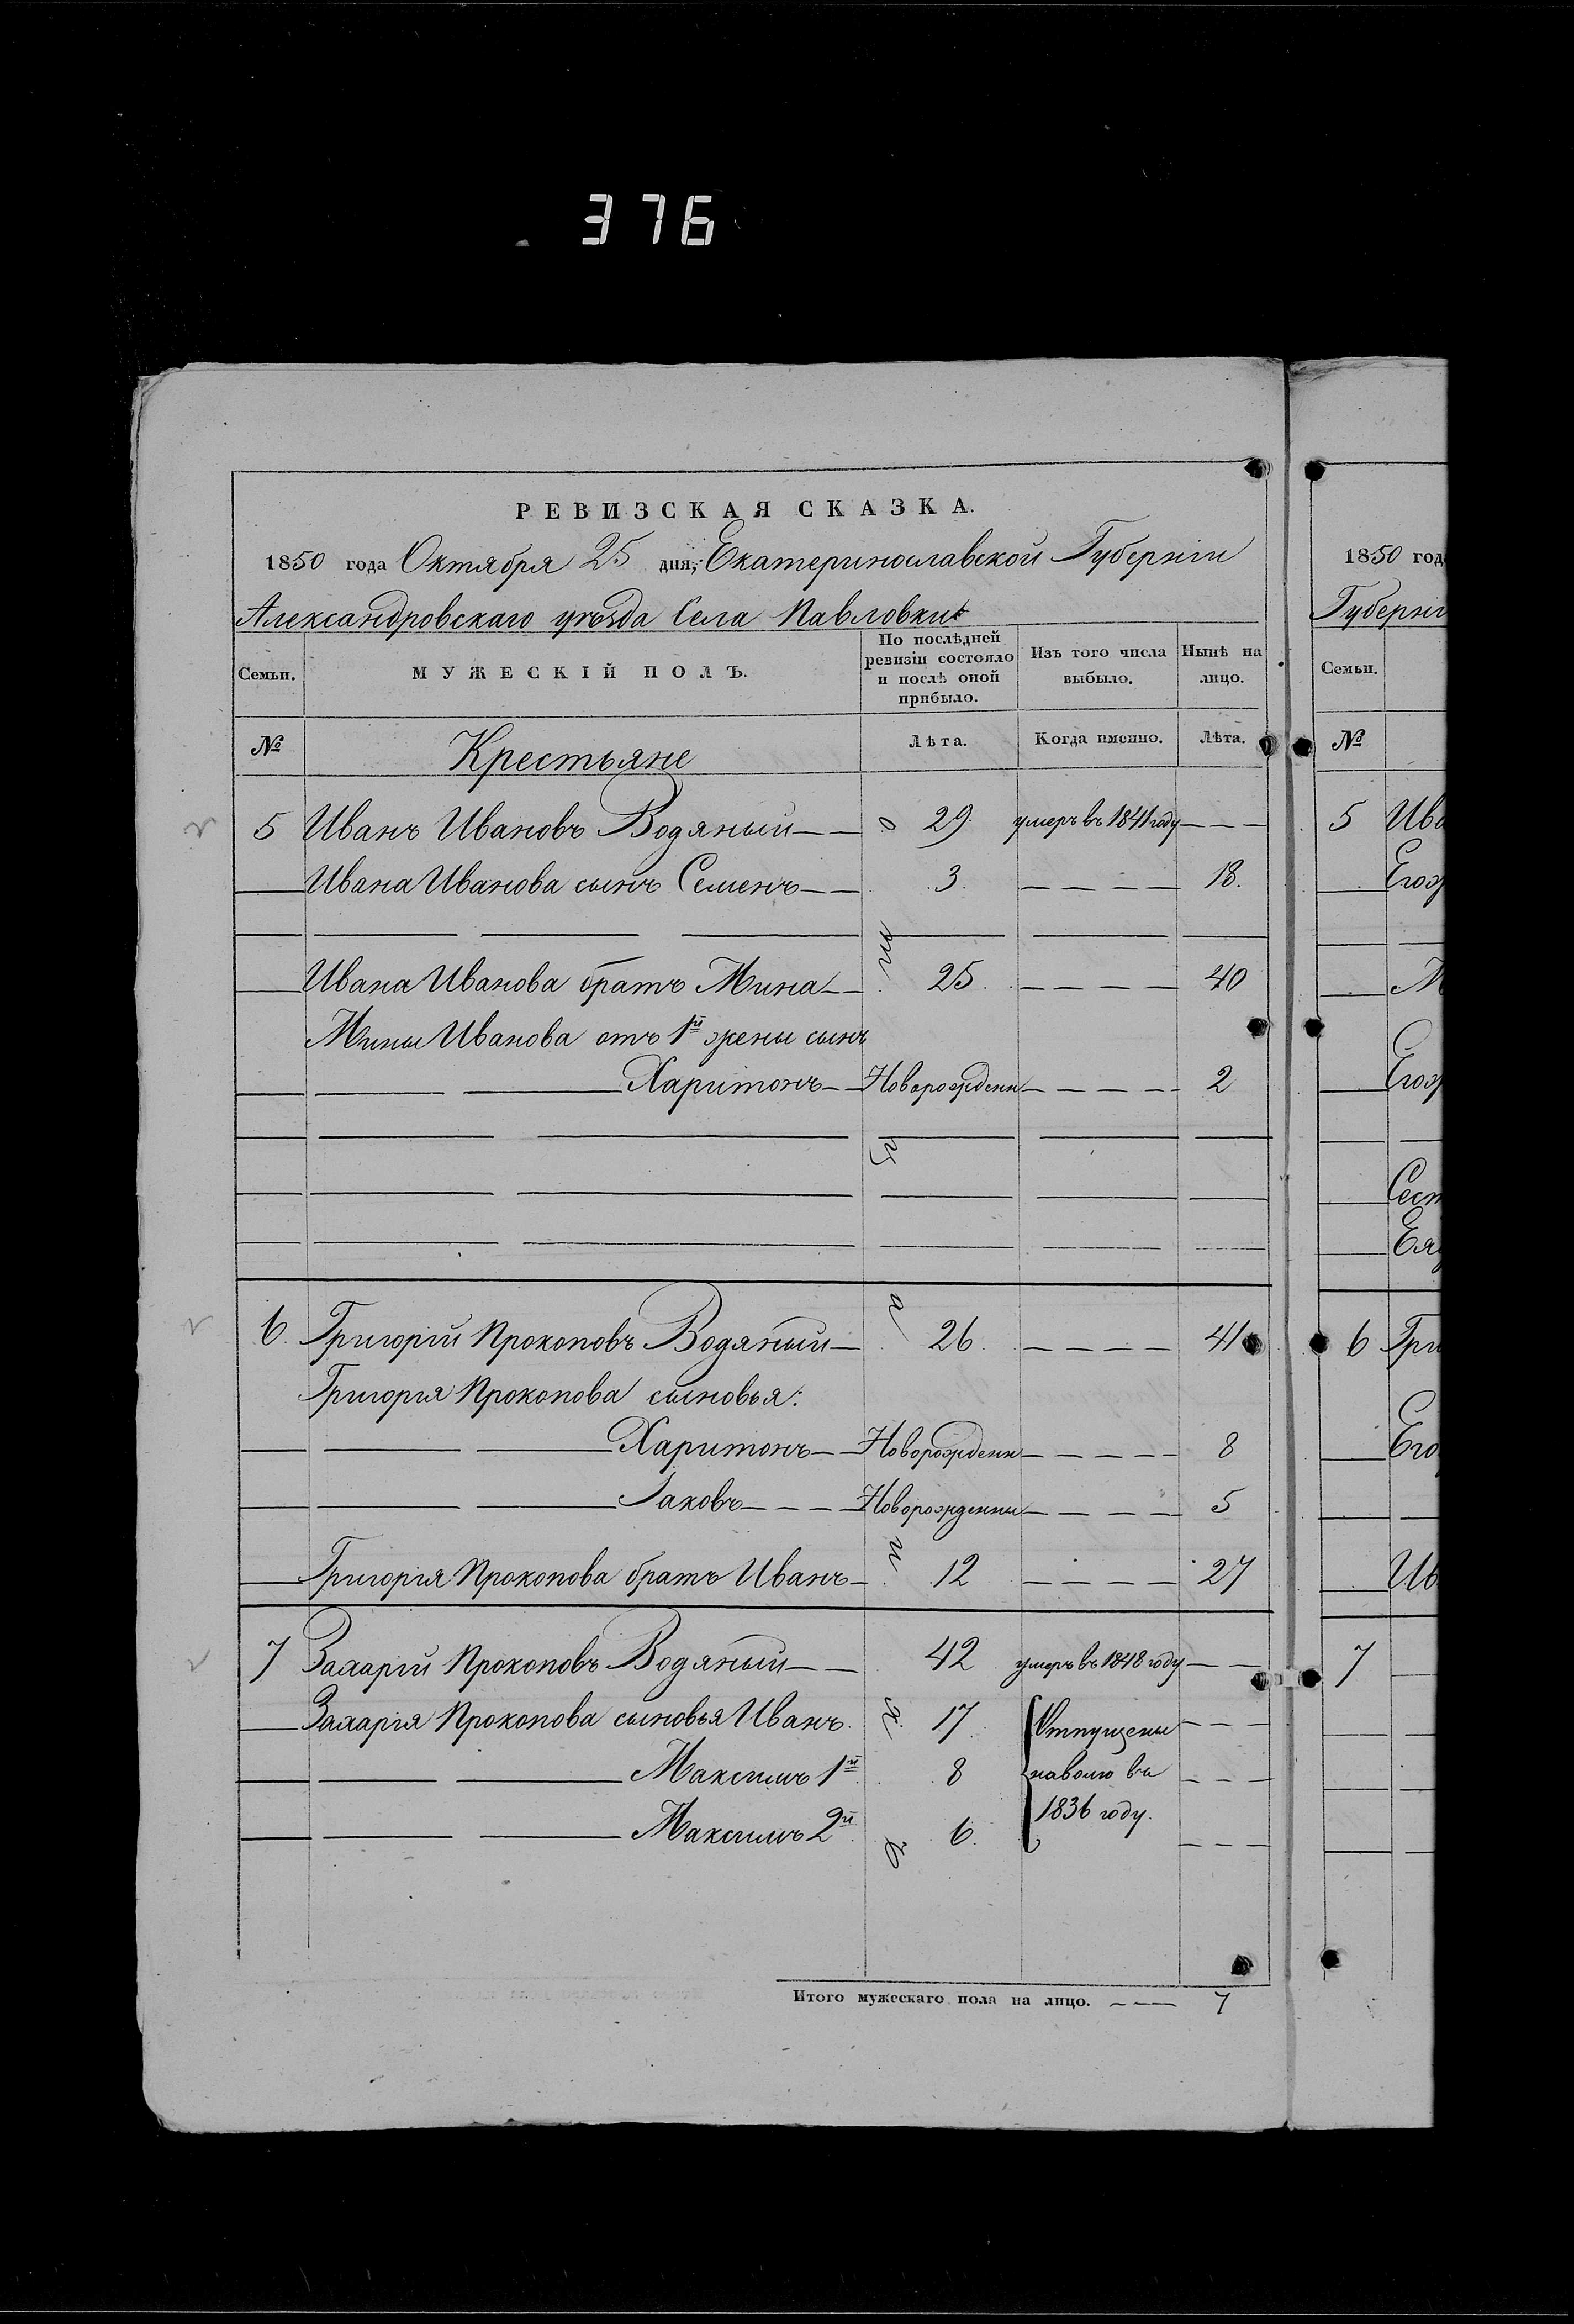 376
РЕВИЗСКАЯ СКАЗКА.
1850 года Октября 25 дня, Екатеринославской Губерніи
Александровскаго уѣзда Села Павловки
Семьи. МУЖЕСКІЙ ПОЛЪ. По послѣдней ревизіи состояло и послѣ оной прибыло. Изъ того числа выбыло. Нынѣ на лицо.
№ Крестьяне Лѣта. Когда именно. Лѣта.
5 Иванъ Ивановъ Водяный 29 умеръ въ 1841 году
Ивана Иванова сынъ Семенъ 3 18.
Ивана Иванова братъ Мина 25 40
Мины Иванова отъ 1й жены сынъ
Харитонъ Новорожденн 2
6. Григорій Прокоповъ Водяный 26 41
Григорія Прокопова сыновья:
Харитонъ Новорожденн 8
Іаковъ Новорожденны 5
Григорія Прокопова братъ Иванъ 12 27
7 Захарій Прокоповъ Водяный 42 умеръ въ 1848 году
Захарія Прокопова сыновья Иванъ 17 Отпущены
Максимъ 1й 8 наволю въ
Максимъ 2й 6 1836 году.
Итого мужескаго пола на лицо. 7
1850 год
Губерні
Семьи.
№
5 Ива
Егож
М
Егож
Сест
Ея
6 Гри
Его
Ив
7